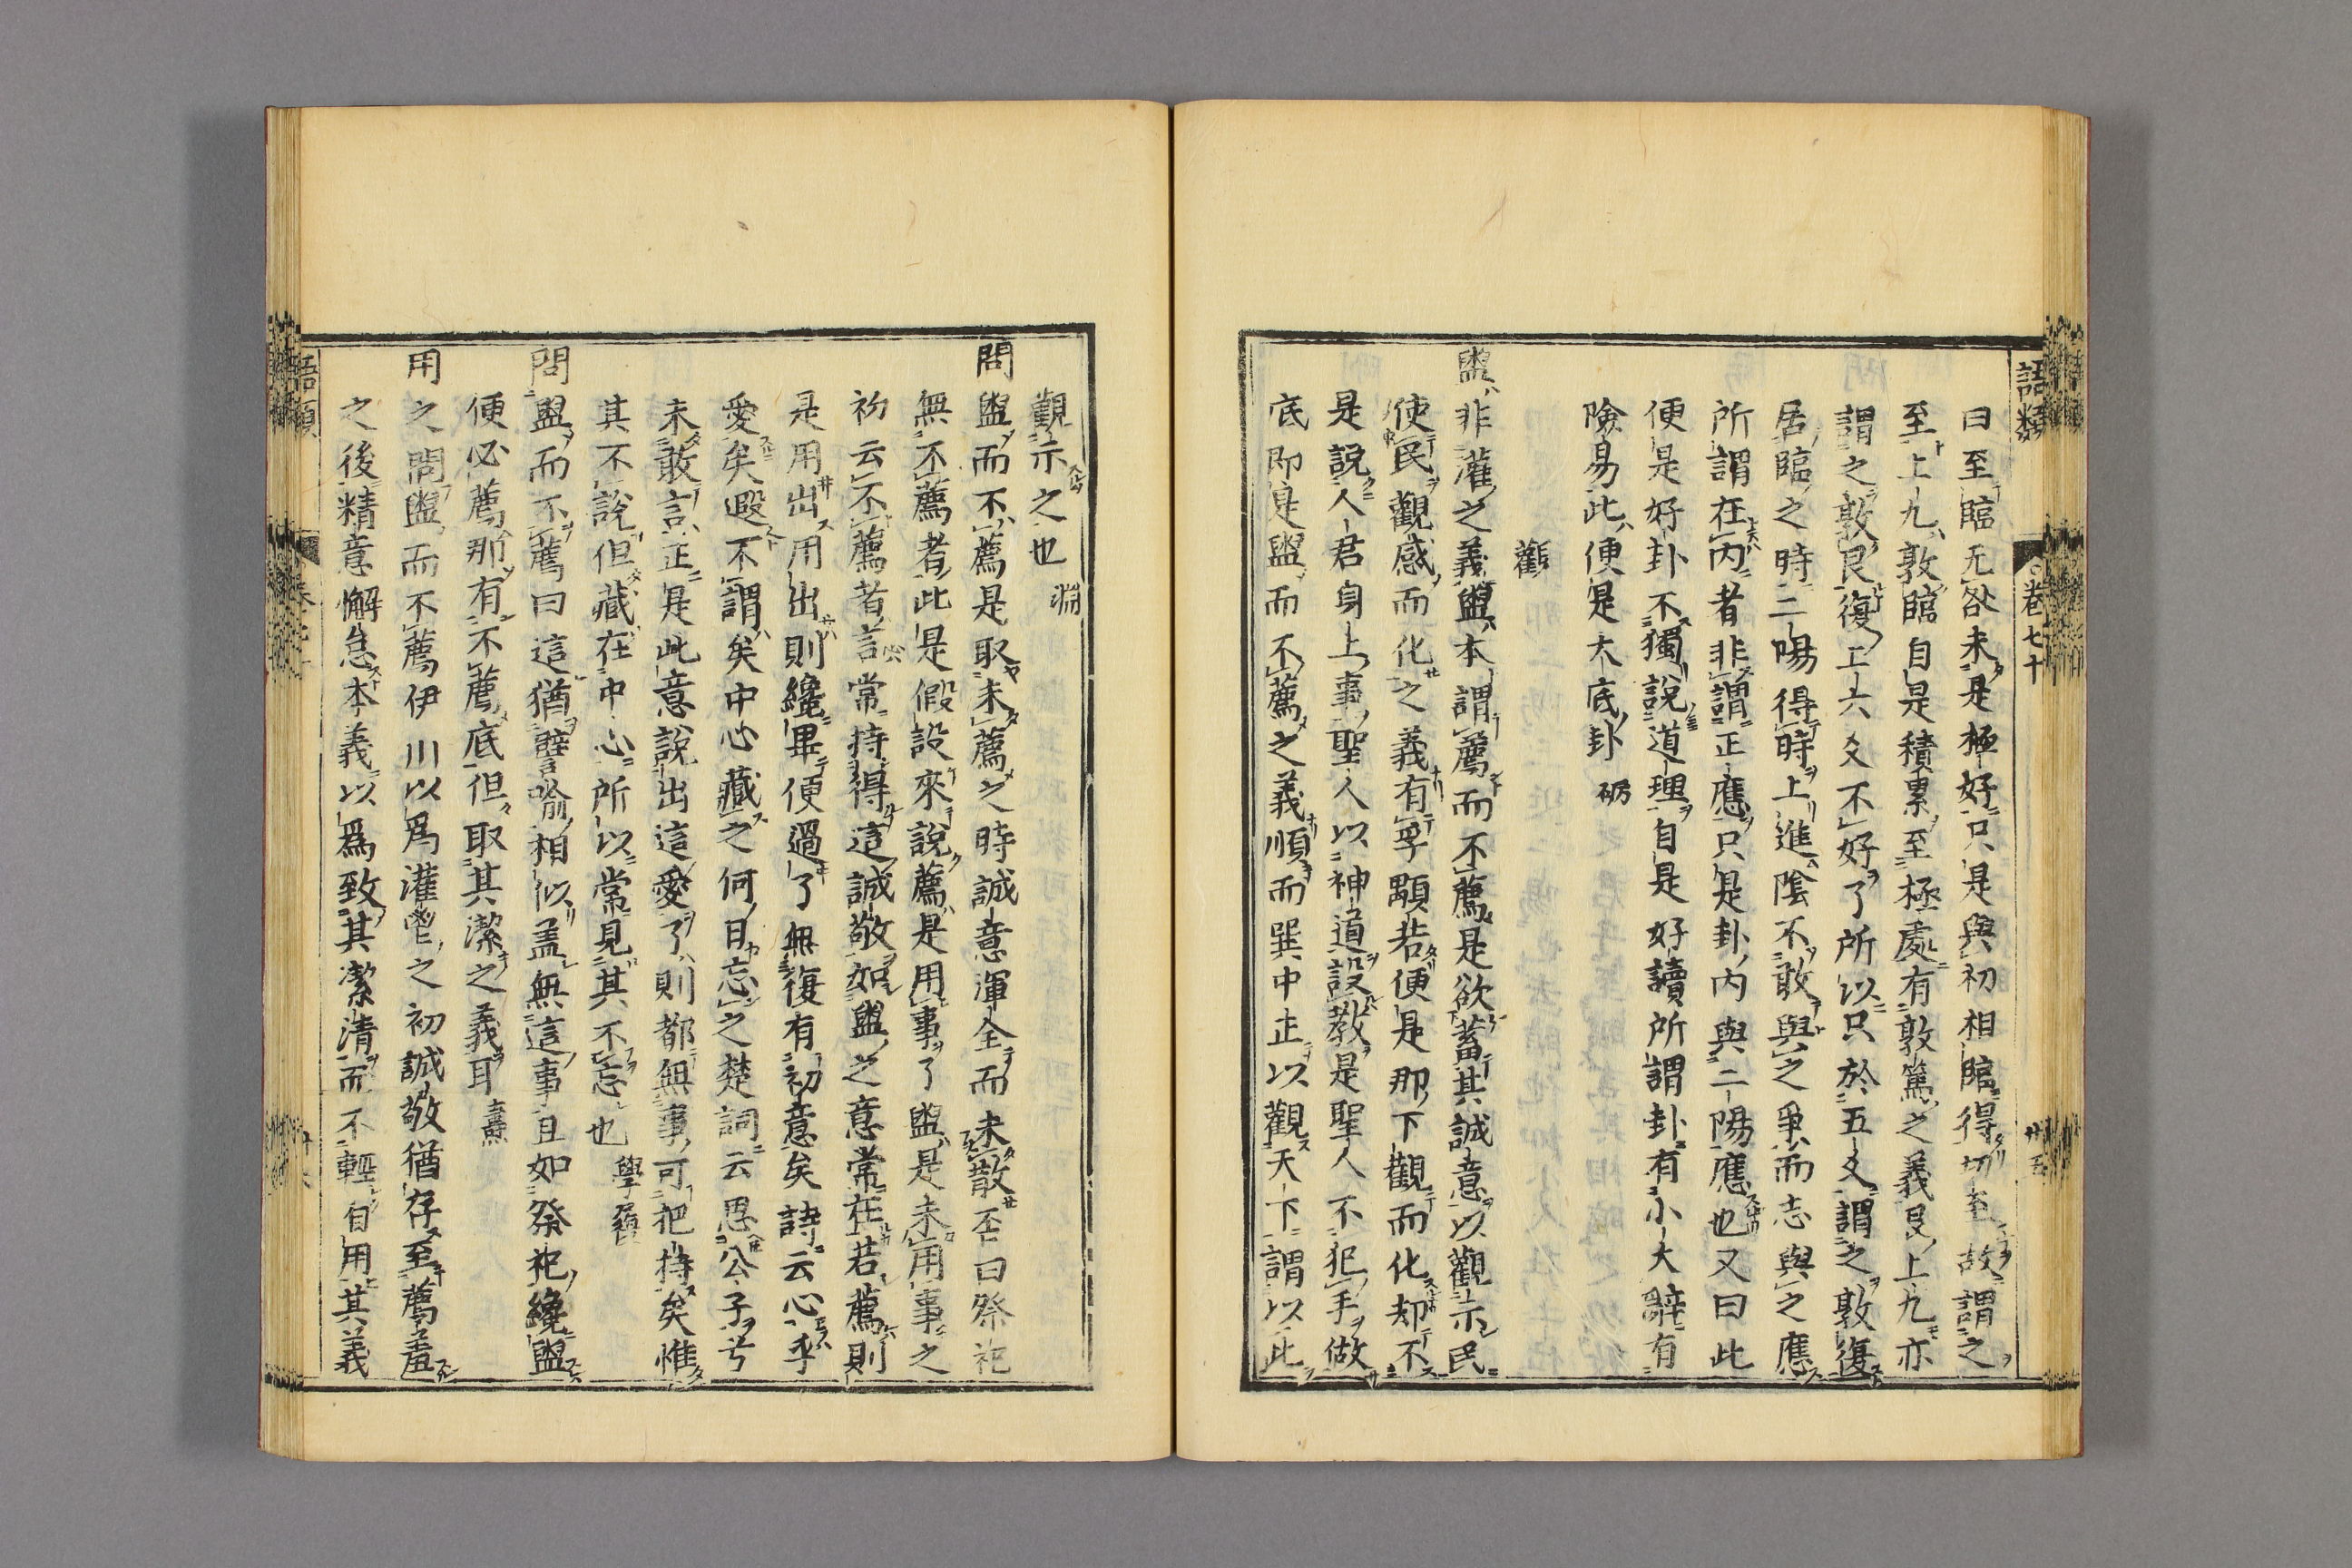 語類 卷七十 卅五
曰至臨无咎未是極好只是與初相臨得切至故謂之
至上九敦臨自是積累至極處有敦篤之義艮上九亦
謂之敦艮復上六爻不好了所以只於五爻謂之敦復
居臨之時二陽得時上進陰不敢與之爭而志與之應
所謂在內者非謂正應只是卦內與二陽應也又曰此
便是好卦不獨說道理自是好讀所謂卦有小大辭有
險易此便是大底卦 礪
觀
盥非灌之義盥本謂薦而不薦是欲蓄其誠意以觀示民
使民觀感而化之義有孚顒若便是那下觀而化却不
是說人君身上事聖人以神道設教是聖人不犯手做
底即是盥而不薦之義順而巽中正以觀天下謂以此
觀示之也 淵
問盥而不薦是取未薦之時誠意渾全而未散否曰祭祀
無不薦者此是假設來說薦是用事了盥是未用事之
初云不薦者言常持得這誠敬如盥之意常在若薦則
是用出用出則纔畢便過了無復有初意矣詩云心乎
愛矣遐不謂矣中心藏之何日忘之楚詞云思公子兮
未敢言正是此意說出這愛了則都無事可把持矣惟
其不說但藏在中心所以常見其不忘也 學蒙
問盥而不薦曰這猶譬喻相似蓋無這事且如祭祀纔盥
便必薦那有不薦底但取其潔之義耳 燾
用之問盥而不薦伊川以爲灌鬯之初誠敬猶存至薦羞
之後精意懈怠本義以爲致其潔清而不輕自用其義
語類